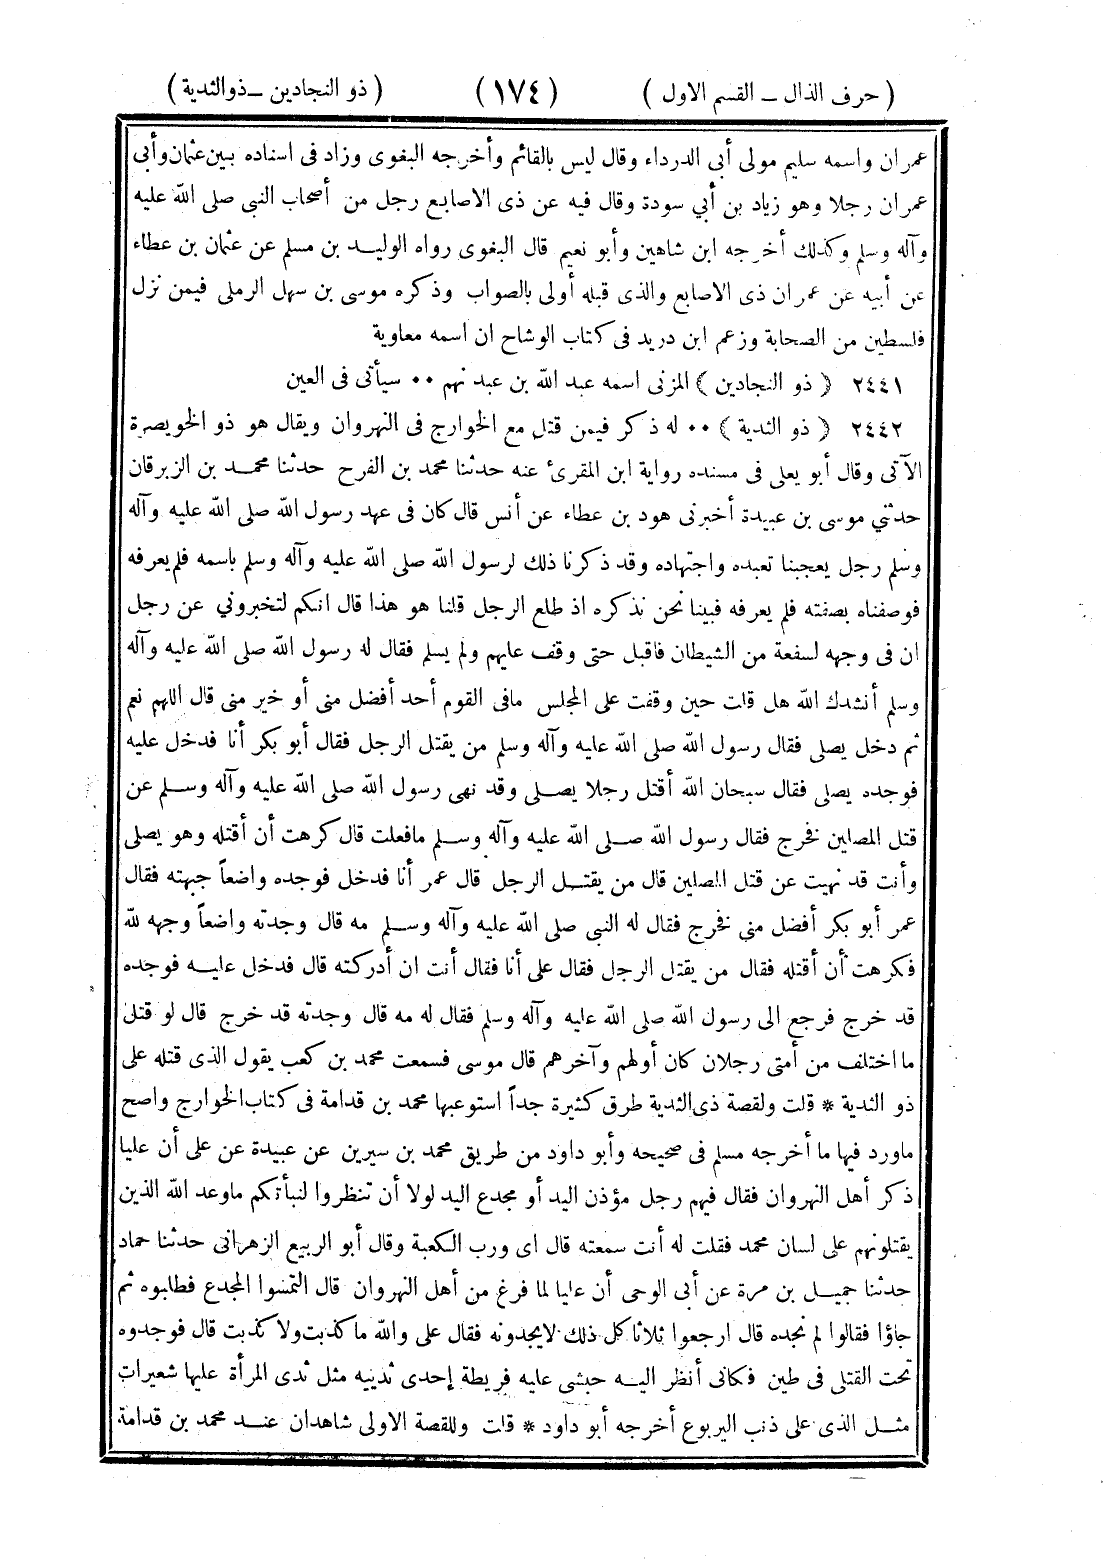 ( حرف الذال ـ القسم الاول ) ( ١٧٤ ) ( ذو النجادين ـ ذوالثدية )
عمران واسمه سليم مولى أبى الدرداء وقال ليس بالقائم وأخرجه البغوى وزاد فى اسناده بين عثمان وأبى
عمران رجلا وهو زياد بن أبي سودة وقال فيه عن ذى الاصابع رجل من أصحاب النبى صلى الله عليه
وآله وسلم وكذلك أخرجه ابن شاهين وأبو نعيم قال البغوى رواه الوليد بن مسلم عن عثمان بن عطاء
عن أبيه عن عمران ذى الاصابع والذى قبله أولى بالصواب وذكره موسى بن سهل الرملى فيمن نزل
فلسطين من الصحابة وزعم ابن دريد فى كتاب الوشاح ان اسمه معاوية
٢٤٤١ ( ذو النجادين ) المزنى اسمه عبد الله بن عبد نهم ٠٠ سيأتى فى العين
٢٤٤٢ ( ذو الثدية ) ٠٠ له ذكر فيمن قتل مع الخوارج فى النهروان ويقال هو ذو الخويصرة
الآتى وقال أبو يعلى فى مسنده رواية ابن المقرئ عنه حدثنا محمد بن الفرح حدثنا محمد بن الزبرقان
حدثني موسى بن عبيدة أخبرنى هود بن عطاء عن أنس قال كان فى عهد رسول الله صلى الله عليه وآله
وسلم رجل يعجبنا تعبده واجتهاده وقد ذكرنا ذلك لرسول الله صلى الله عليه وآله وسلم باسمه فلم يعرفه
فوصفناه بصفته فلم يعرفه فبينا نحن نذكره اذ طلع الرجل قلنا هو هذا قال انكم لتخبروني عن رجل
ان فى وجهه لسفعة من الشيطان فاقبل حتى وقف عليهم ولم يسلم فقال له رسول الله صلى الله عليه وآله
وسلم أنشدك الله هل قلت حين وقفت على المجلس مافى القوم أحد أفضل منى أو خير منى قال اللهم نعم
ثم دخل يصلى فقال رسول الله صلى الله عليه وآله وسلم من يقتل الرجل فقال أبو بكر أنا فدخل عليه
فوجده يصلى فقال سبحان الله أقتل رجلا يصلى وقد نهى رسول الله صلى الله عليه وآله وسلم عن
قتل المصلين فخرج فقال رسول الله صلى الله عليه وآله وسلم مافعلت قال كرهت أن أقتله وهو يصلى
وأنت قد نهيت عن قتل المصلين قال من يقتل الرجل قال عمر أنا فدخل فوجده واضعاً جبهته فقال
عمر أبو بكر أفضل منى فخرج فقال له النبى صلى الله عليه وآله وسلم مه قال وجدته واضعاً وجهه لله
فكرهت أن أقتله فقال من يقتل الرجل فقال على أنا فقال أنت ان أدركته قال فدخل عليه فوجده
قد خرج فرجع الى رسول الله صلى الله عليه وآله وسلم فقال له مه قال وجدته قد خرج قال لو قتل
ما اختلف من أمتى رجلان كان أولهم وآخرهم قال موسى فسمعت محمد بن كعب يقول الذى قتله على
ذو الثدية * قلت ولقصة ذى الثدية طرق كثيرة جداً استوعبها محمد بن قدامة فى كتاب الخوارج واصح
ماورد فيها ما أخرجه مسلم فى صحيحه وأبو داود من طريق محمد بن سيرين عن عبيدة عن على أن عليا
ذكر أهل النهروان فقال فيهم رجل مؤذن اليد أو مجدع اليد لولا أن تنظروا لنبأتكم ماوعد الله الذين
يقتلونهم على لسان محمد فقلت له أنت سمعته قال اى ورب الكعبة وقال أبو الربيع الزهرانى حدثنا حماد
حدثنا جميل بن مرة عن أبى الوحى أن عليا لما فرغ من أهل النهروان قال التمسوا المجدع فطلبوه ثم
جاؤا فقالوا لم نجده قال ارجعوا ثلاثا كل ذلك لايجدونه فقال على والله ما كذبت ولا كذبت قال فوجدوه
تحت القتلى فى طين فكانى أنظر اليه حبشى عليه قريطة إحدى ثدييه مثل ثدى المرأة عليها شعيرات
مثل الذى على ذنب اليربوع أخرجه أبو داود * قلت وللقصة الاولى شاهدان عند محمد بن قدامة